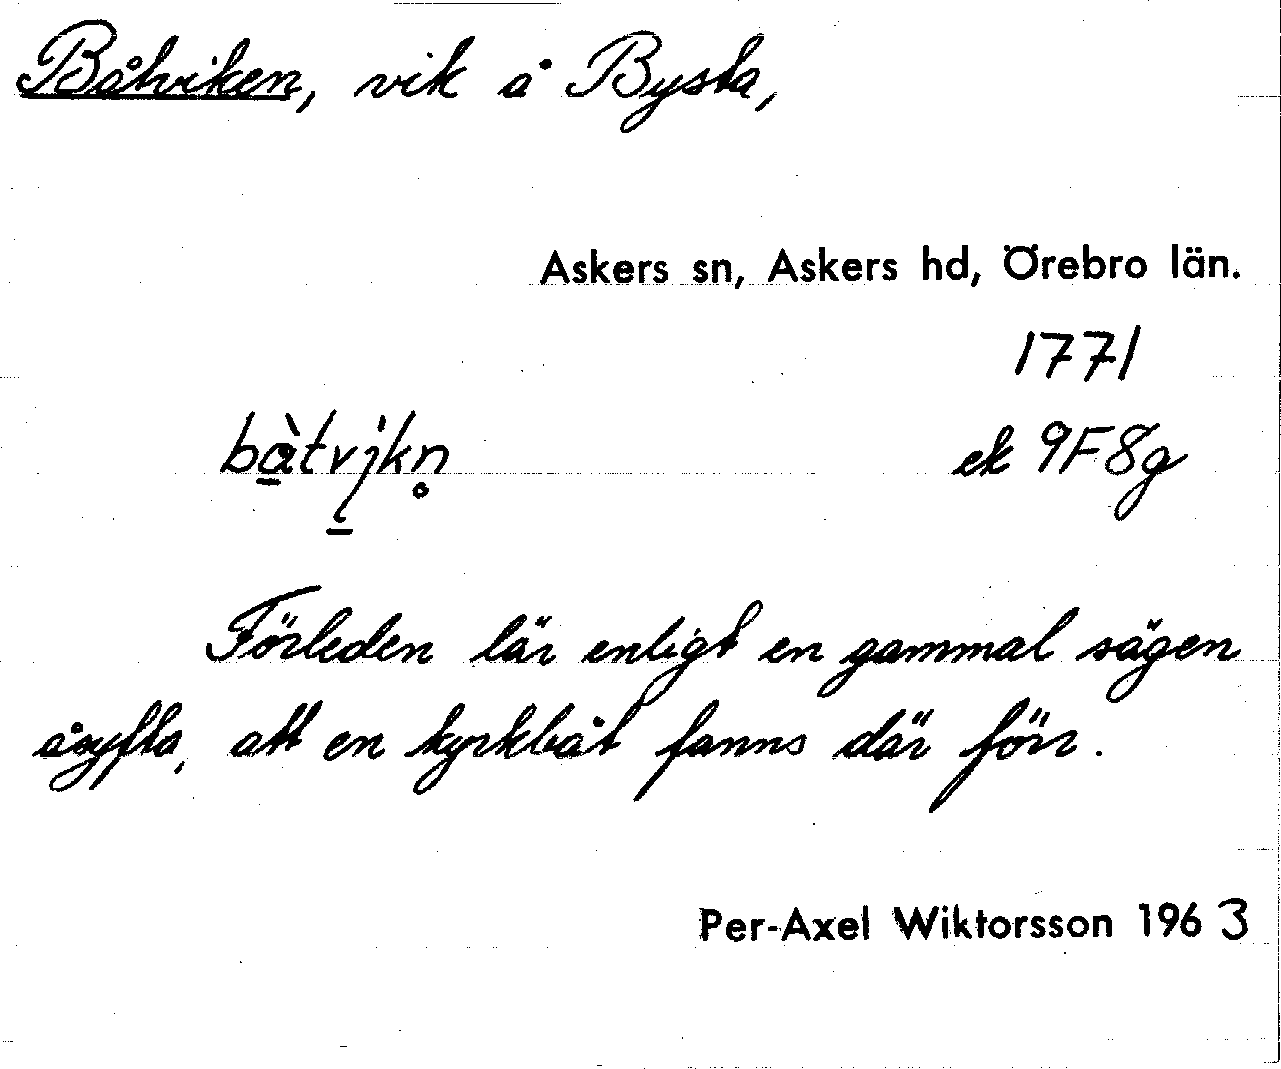 Båtviken, vik å Bysta,
Askers sn, Askers hd, Örebro län.
1771
bàtvikn̥
ek 9F8g
Förleden lär enligt en gammal sägen
åsyfta, att en kyrkbåt fanns där förr.
Per-Axel Wiktorsson 1963